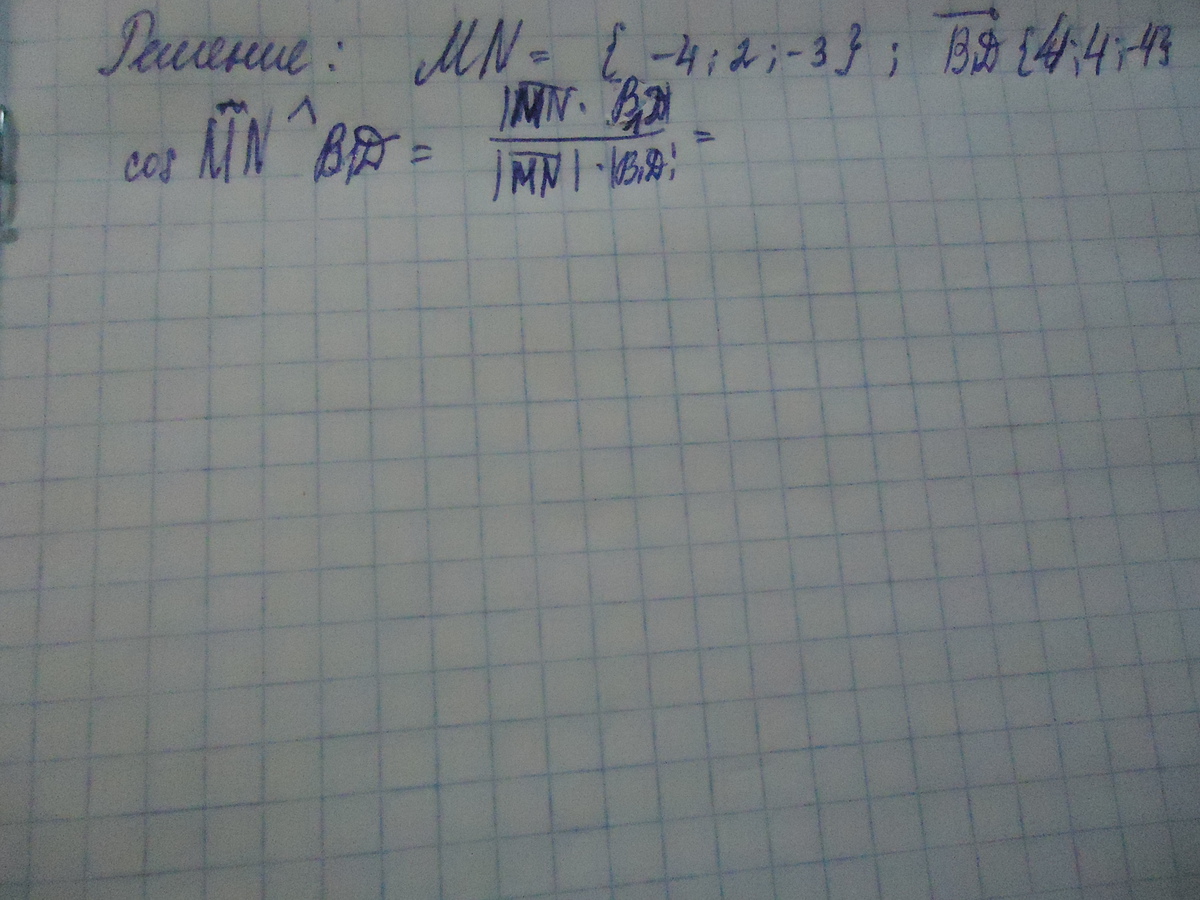 Решение: MN = { -4; 2; -3 } ; BD { 4; 4; -4}
cos MN ^ B₁D = |MN · B₁D| / |MN| · |B₁D| =